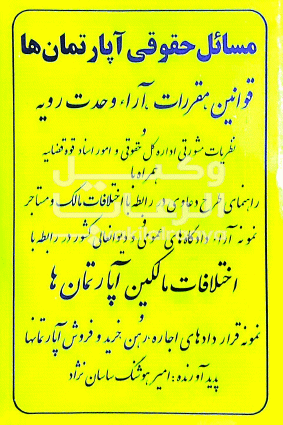 مسائل حقوقی آپارتمان‌ها
قوانین، مقررات، آراء وحدت رویه
و
نظریات مشورتی اداره کل حقوقی و امور اسناد قوه قضائیه
همراه با
راهنمای طرح دعاوی در رابطه با اختلافات مالک و مستاجر
نمونه آراء دادگاه‌های حقوقی و دیوانعالی کشور در رابطه با
اختلافات مالکین آپارتمان ها
و
نمونه قرار دادهای اجاره، رهن، خرید و فروش آپارتمانها
پدید آورنده: امیر هوشنگ ساسان نژاد